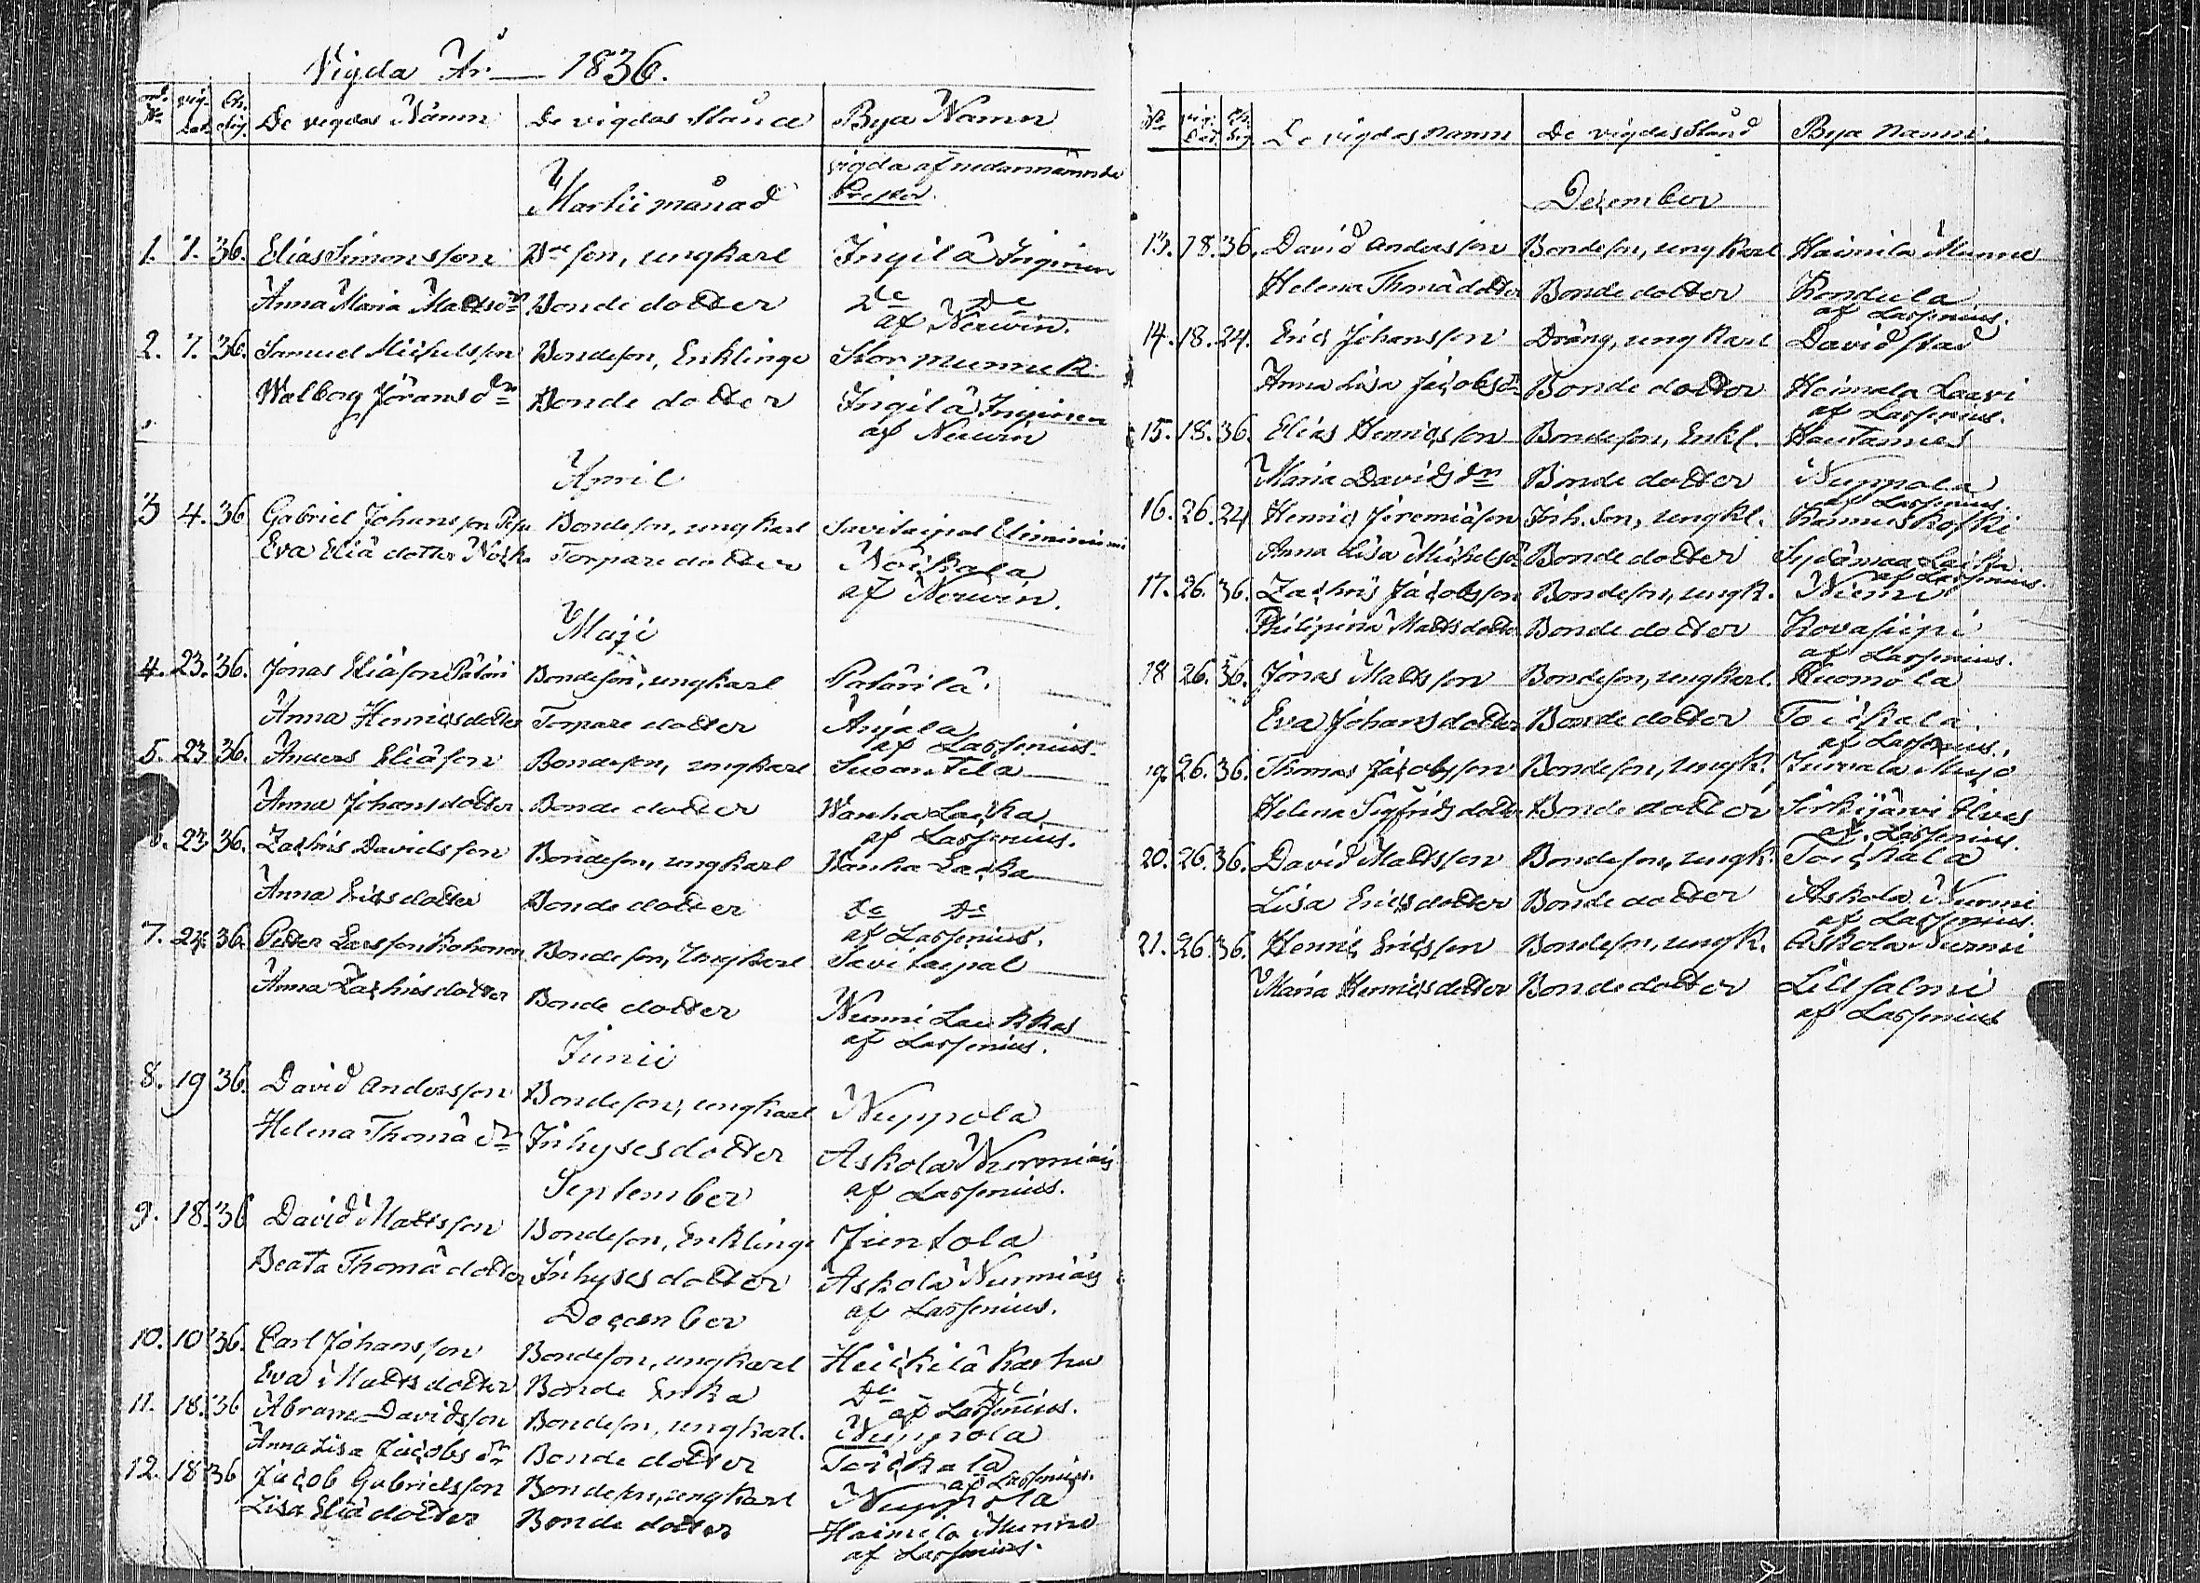 Vigda År 1836.
De vigdas Namn De vigdas Stånd Bya Namn
vigda af nedannämnde
Martii månad Prester.
1. 7. 36. Elias Simonsson Bde son, ungkarl Ingilä Inginen
Anna Maria Mattsdr Bonde dotter De De
af Nerwin.
2. 7. 36. Samuel Michelsson Bondeson, Enklinge Kormunnuk
Walborg Jörans dr Bonde dotter Ingilä Inginen
af Nerwin
April
3 4. 36 Gabriel Johansson Bondeson, ungkarl Savitaipal
Eva Eliä dotter Torpare dotter Noikala
af Nerwin.
Maji
4. 23. 36. Jonas Eliäson Pätäri Bondeson, ungkarl Patärilä.
Anna Henricsdotter Torpare dotter Anjala
af Lassenius.
5. 23 36. Anders Eliäson Bondeson, ungkarl Suoanttila
Anna Johansdotter Bonde dotter Wanha Laika
af Lassenius.
6. 23 36. Zachris Davidsson Bondeson, ungkarl Wanha Laika
Anna Ericsdotter Bonde dotter De De
af Lassenius.
7. 24. 36. Petter Larsson Kohonen Bondeson, Ungkarl Savitaipal
Anna Zachrisdotter Bonde dotter Nurmi Laukkas
af Lassenius.
Junii
8. 19 36. David Andersson Bondeson, ungkarl Nuppola
Helena Thomä dr Inhyses dotter Askola Nurmiais
September af Lassenius.
9. 18. 36 David Mattsson Bondeson, Enklinge Juntola
Beata Thomä dotter Inhyses dotter Askola Nurmiais
December af Lassenius.
10. 10 36. Carl Johansson Bondeson, ungkarl Heickilä Karhu
Eva Mattsdotter Bonde Enka De De
af Lassenius.
11. 18. 36 Abram Davidsson Bondeson, ungkarl. Nuppola
Anna Lisa Jacobs dr Bonde dotter Toickala
af Lassenius.
12. 18 36 Jacob Gabrielsson Bondeson, ungkarl Nuppola
Lisa Eliä dotter Bonde dotter Haimila Munne
af Lassenius.
De vigdas namn De vigdas Stånd Bya namn.
December
13. 18. 36. David Andersson Bondeson, ungkarl Haimila Munne
Helena Thomädotter Bonde dotter Kondula
af Lassenius.
14. 18. 24. Eric Johansson Dräng, ungkarl Davidstad
Anna Lisa Jacobsdr Bonde dotter Heimala Laari
af Lassenius.
15. 18. 36. Elias Henricsson Bondeson, Enkl. Hautamies
Maria Davidsdr Bonde dotter Nuppola
af Lassenius.
16. 26. 24 Henric Jeremiäson Inh. Son, ungkl. Kannuskoski
Anna Lisa Michelsdr Bonde dotter Sydänmaa Laika
af Lassenius.
17. 26. 36. Zachris Jacobsson Bondeson, ungk. Niemi
Philipina Mattsdotter Bonde dotter Kovasippi
af Lassenius.
18 26. 36. Jonas Mattsson Bondeson, ungkarl. Huomola
Eva Johansdotter Bonde dotter Toickala
af Lassenius.
19. 26. 36. Thomas Jacobsson Bondeson, ungk.
Helena Sigfridsdotter Bonde dotter Sirkijärvi Ilves
af Lassenius.
20. 26. 36. David Mattsson Bondeson, ungk. Toickala
Lisa Ericsdotter Bonde dotter Askola Nurmi
af Lassenius.
21. 26. 36. Henric Ericsson Bondeson, ungk. Askola Nurmi
Maria Henricsdotter Bonde dotter Lillsalmi
af Lassenius